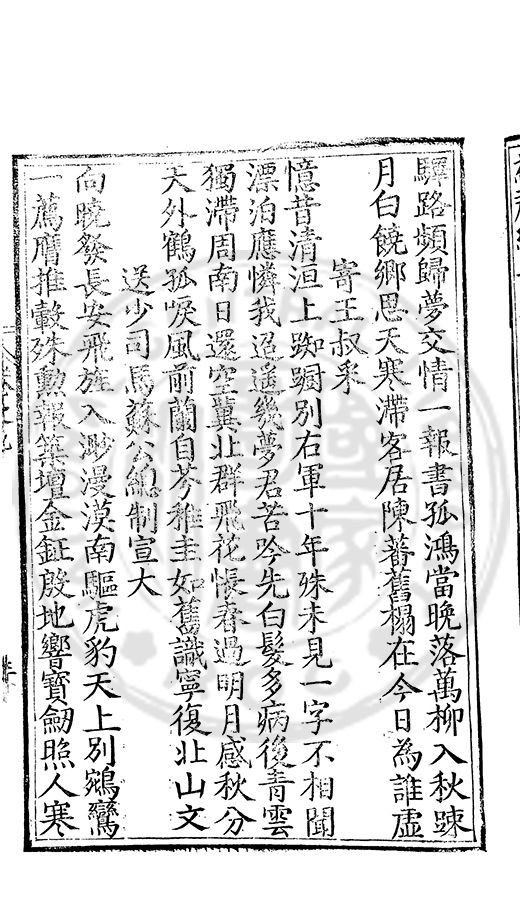 驛路頻歸夢交情一報書孤鴻當晚落萬柳入秋踈
月白饒鄉思天寒滯客居陳蕃舊榻在今日為誰虛
寄王叔釆
憶昔清洹上踟蹰別右軍十年殊未見一字不相聞
漂泊應憐我迢遥幾夢君苦吟先白髮多病後青雲
獨滯周南日還空冀北群飛花悵春過明月感秋分
天外鶴孤唳風前蘭自芬稚圭如舊識寧復北山文
送少司馬蘇公總制宣大
向曉發長安飛旌入渺漫漠南驅虎豹天上別鵷鸞
一薦膺推轂殊勲報築壇金鉦殷地響寳劒照人寒